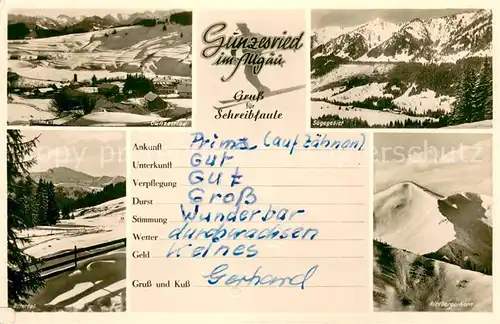 Gunzesried
im Allgäu
Gruß
für
Schreibfaule
Gunzesried
Sägegebiet
Ankunft Prima (auf Zähnen)
Unterkunft Gut
Verpflegung Gut
Durst Groß
Stimmung Wunderbar
Wetter durchwachsen
Geld Keines
Gruß und Kuß Gerhard